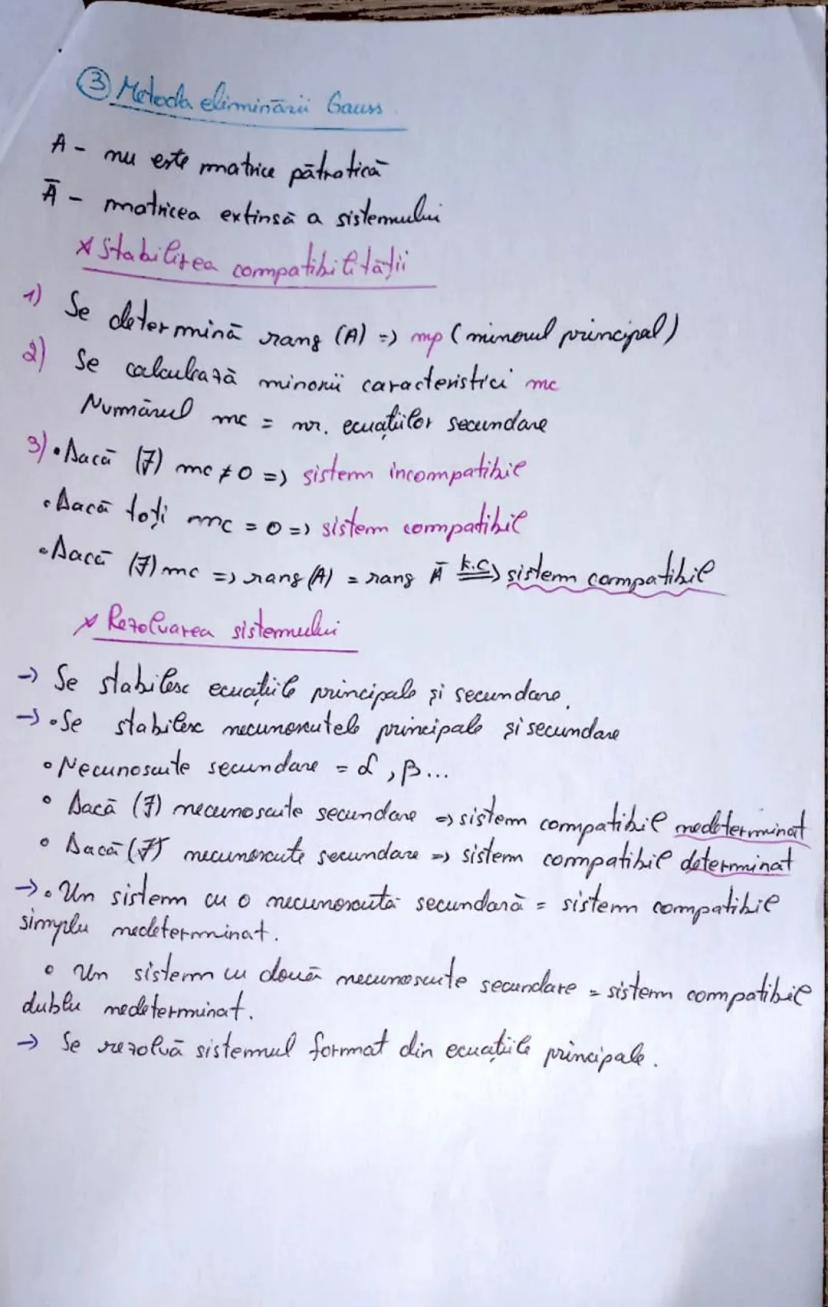 ③ Metoda eliminării Gauss
A - nu este matrice pătratică
Ā - matricea extinsă a sistemului
* Stabilirea compatibilității
1) Se determină rang (A) => mp (minorul principal)
2) Se calculează minorii caracteristici mc
Numărul mc = nr. ecuațiilor secundare
3) • Dacă (∃) mc ≠ 0 => sistem incompatibil
• Dacă toți mc = 0 => sistem compatibil
• Dacă (∄) mc => rang (A) = rang Ā K.C => sistem compatibil
* Rezolvarea sistemului
→ Se stabilesc ecuațiile principale și secundare.
→ • Se stabilesc necunoscutele principale și secundare
• Necunoscute secundare = α, β...
• Dacă (∃) necunoscute secundare => sistem compatibil nedeterminat
• Dacă (∄) necunoscute secundare => sistem compatibil determinat
→ • Un sistem cu o necunoscută secundară = sistem compatibil
simplu nedeterminat.
• Un sistem cu două necunoscute secundare = sistem compatibil
dublu nedeterminat.
→ Se rezolvă sistemul format din ecuațiile principale.